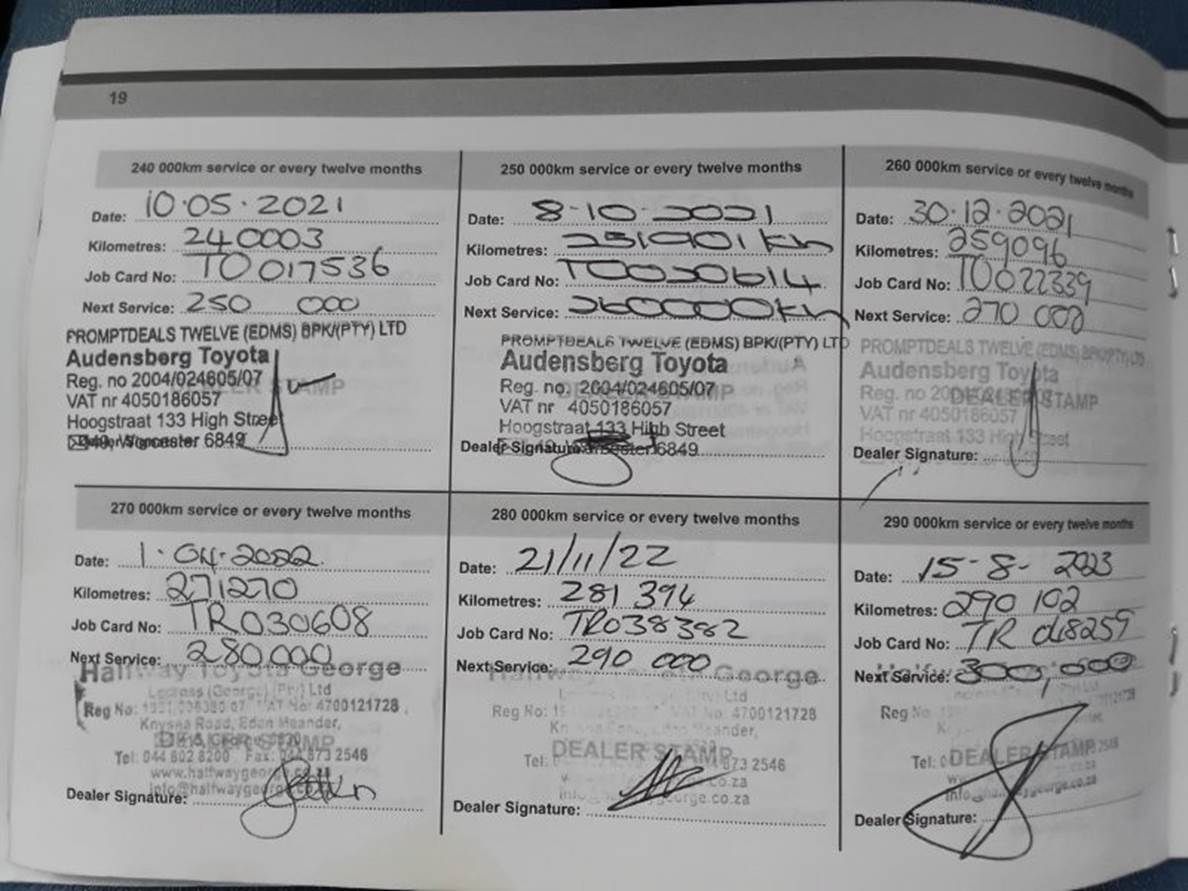 19
240 000km service or every twelve months
Date: 10.05.2021
Kilometres: 240003
Job Card No: TO017536
Next Service: 250 000
PROMPTDEALS TWELVE (EDMS) BPK/(PTY) LTD
Audensberg Toyota
Reg. no 2004/024605/07
VAT nr 4050186057
Hoogstraat 133 High Street
Worcester 6849
250 000km service or every twelve months
Date: 8-10-2021
Kilometres: 251901km
Job Card No: TO020614
Next Service: 260000km
PROMPTDEALS TWELVE (EDMS) BPK/(PTY) LTD
Audensberg Toyota
Reg. no 2004/024605/07
VAT nr 4050186057
Hoogstraat 133 High Street
Dealer Signature: 6849
260 000km service or every twelve months
Date: 30.12.2021
Kilometres: 259096
Job Card No: TO022339
Next Service: 270 000
PROMPTDEALS TWELVE (EDMS) BPK/(PTY) LTD
Audensberg Toyota
DEALER STAMP
VAT nr 4050186057
Hoogstraat 133 High Street
Dealer Signature:
270 000km service or every twelve months
Date: 1.04.2022
Kilometres: 271270
Job Card No: TR030608
Next Service: 280000
Halfway Toyota George
(George) (Pty) Ltd
Reg No: VAT No: 4700121728
Knysna Road, Eden Meander,
DEALER STAMP
Tel: 044 802 8200 Fax: 044 873 2546
www.halfwaygeorge.co.za
Dealer Signature:
280 000km service or every twelve months
Date: 21/11/22
Kilometres: 281 394
Job Card No: TR038382
Next Service: 290 000
Halfway George
Ltd
Reg No: VAT No: 4700121728
DEALER STAMP
Tel: 873 2546
george.co.za
Dealer Signature:
290 000km service or every twelve months
Date: 15-8-2023
Kilometres: 290 102
Job Card No: TR048259
Next Service: 300,000
Reg No:
DEALER STAMP
Tel:
Dealer Signature: